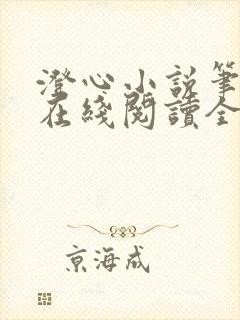 澄心小说筆
在綫閱讀全
京海成